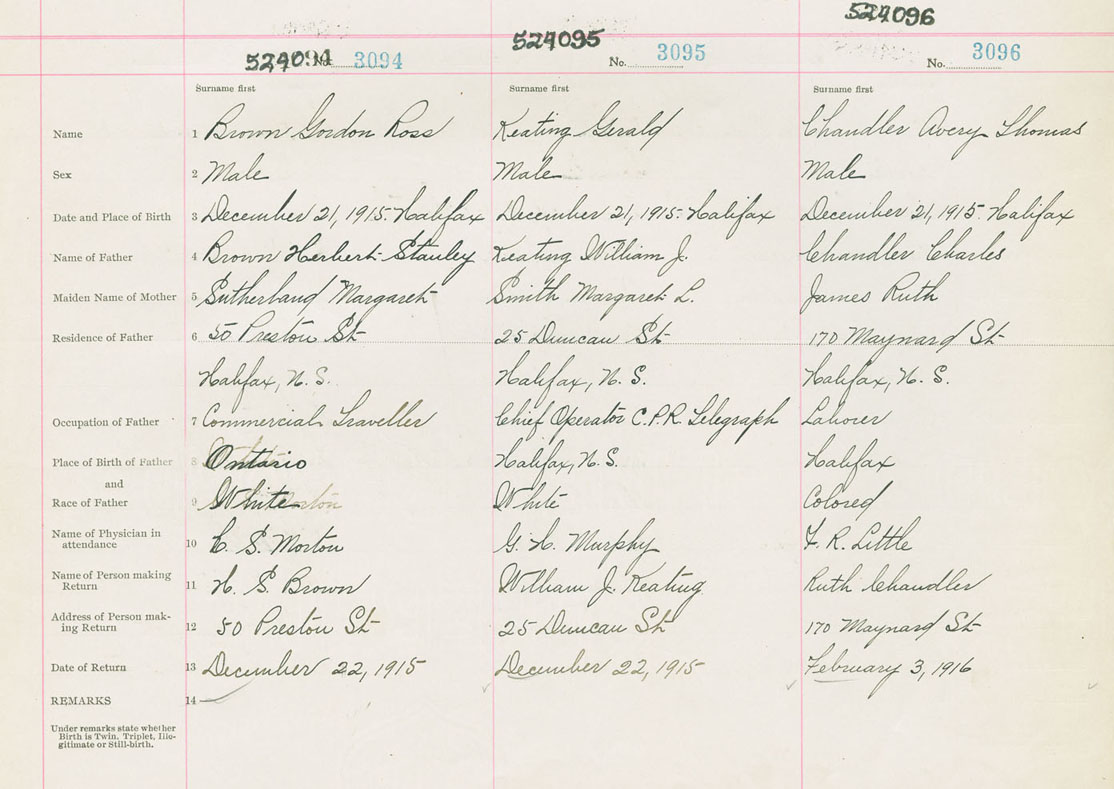 524096
524095
524094
No. 3094
No. 3095
No. 3096
Surname first
Surname first
Surname first
Name 1 Brown Gordon Ross Keating Gerald Chandler Avery Thomas
Sex 2 Male Male Male
Date and Place of Birth 3 December 21, 1915. Halifax December 21, 1915. Halifax December 21, 1915. Halifax
Name of Father 4 Brown Herbert Stanley Keating William J. Chandler Charles
Maiden Name of Mother 5 Sutherland Margaret Smith Margaret L. James Ruth
Residence of Father 6 50 Preston St 25 Duncan St 170 Maynard St
Halifax, N. S. Halifax, N. S. Halifax, N. S.
Occupation of Father 7 Commercial Traveller Chief Operator C.P.R. Telegraph Laborer
Place of Birth of Father 8 Ontario Halifax, N. S. Halifax
and
Race of Father 9 White White Colored
Name of Physician in
attendance 10 S. Morton G. H. Murphy F. R. Little
Name of Person making
Return 11 H. S. Brown William J. Keating Ruth Chandler
Address of Person mak-
ing Return 12 50 Preston St 25 Duncan St 170 Maynard St
Date of Return 13 December 22, 1915 December 22, 1915 February 3, 1916
REMARKS 14
Under remarks state whether
Birth is Twin, Triplet, Ille-
gitimate or Still-birth.